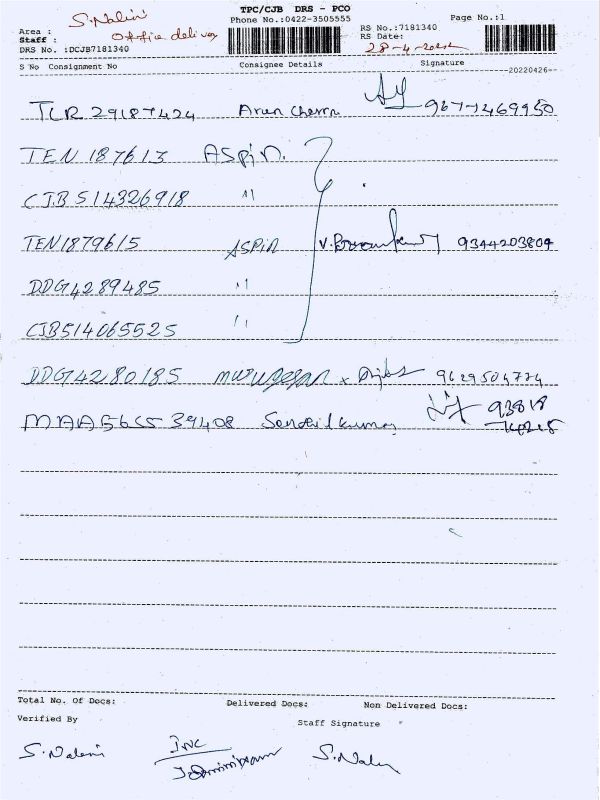 TPC/CJB DRS - PCO
Phone No.:0422-3505555 Page No.:1
Area : S. Nalini
Staff : Office delivery
DRS No. :DCJB7181340
RS No.:7181340
RS Date: 28-4-2022
S No Consignment No Consignee Details Signature
20220426-
TLR 29187424 Arun Cherra 9677469950
TEN 187613 ASPIN.
CJB 514326918 "
TEN1879615 ASPIN 9344203804
DDG4289485 "
CJB514065525 "
DDG4280185 murugesan 9629504774
MAA565539408 Senthilkumar 93818
74215
Total No. Of Docs: Delivered Docs: Non Delivered Docs:
Verified By Staff Signature
S. Nalini S. Nalini